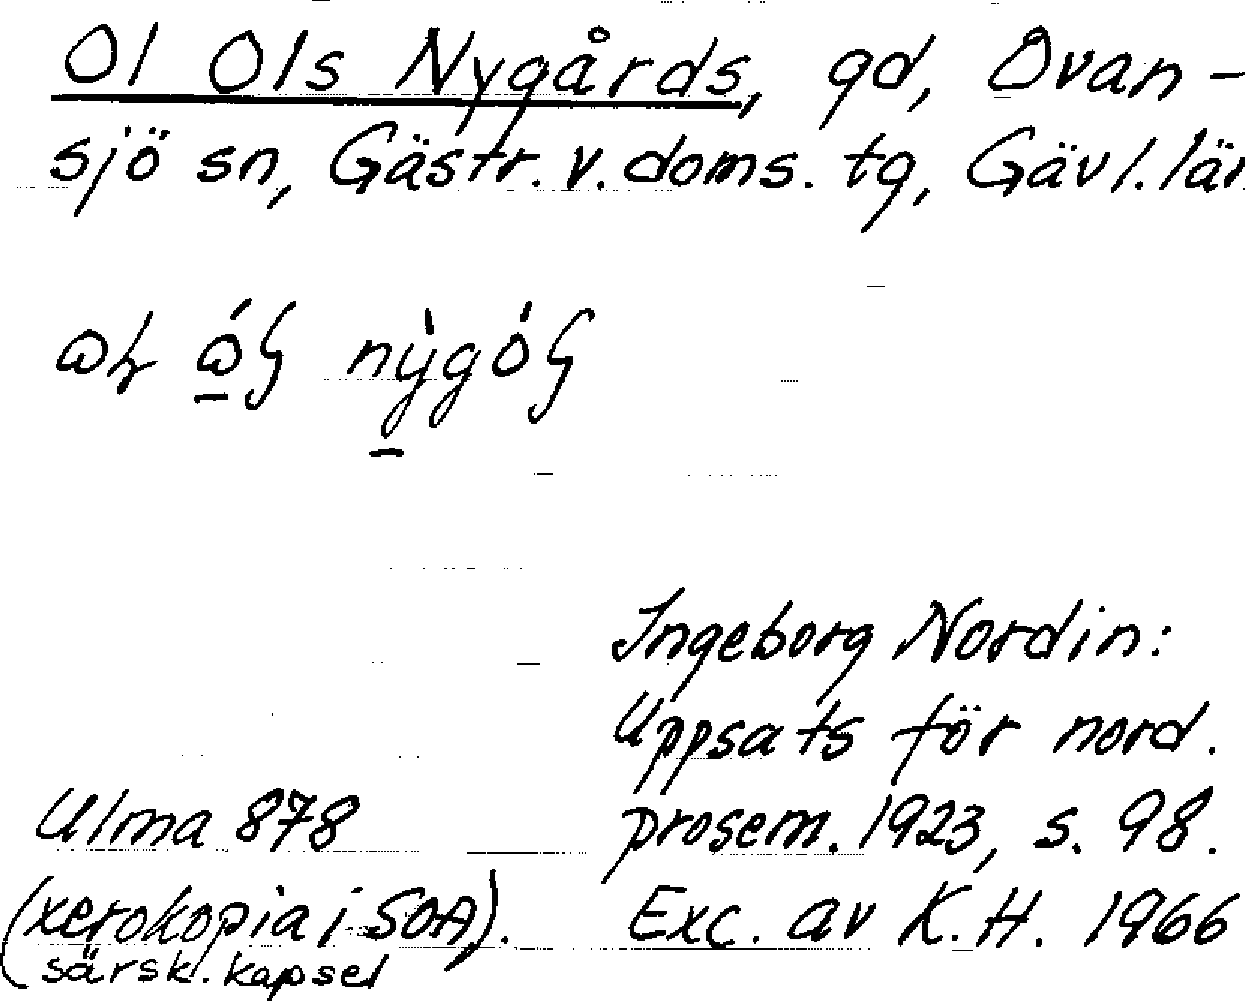 Ol Ols Nygårds, gd, Ovan-
sjö sn, Gästr. v. doms. tg, Gävl. län
Ingeborg Nordin:
Uppsats för nord.
Ulma 878 prosem. 1923, s. 98.
(xerokopia i SOA). Exc. av K.H. 1966
särsk. kapsel